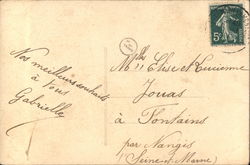 Nos meilleurs souhaits
à vous
Gabrielle
Mlles Elise et Lucienne
Jouas
à Fontains
par Nangis
(Seine-et-Marne)
5c